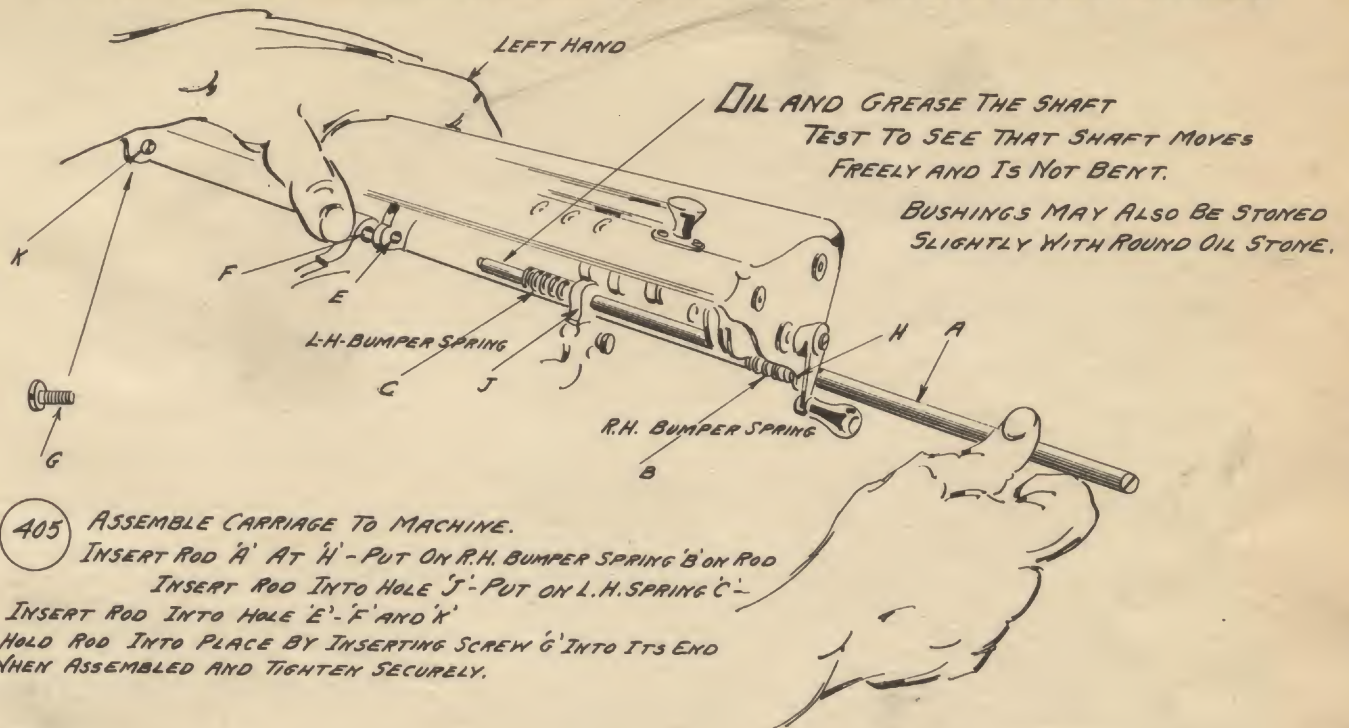 LEFT HAND
OIL AND GREASE THE SHAFT
TEST TO SEE THAT SHAFT MOVES
FREELY AND IS NOT BENT.
BUSHINGS MAY ALSO BE STONED
SLIGHTLY WITH ROUND OIL STONE.
K
F
E
L-H-BUMPER SPRING
C
J
H
A
R.H. BUMPER SPRING
B
G
405 ASSEMBLE CARRIAGE TO MACHINE.
INSERT ROD 'A' AT 'H' - PUT ON R.H. BUMPER SPRING 'B' ON ROD
INSERT ROD INTO HOLE 'J' - PUT ON L.H. SPRING 'C' -
INSERT ROD INTO HOLE 'E' - 'F' AND 'K'
HOLD ROD INTO PLACE BY INSERTING SCREW 'G' INTO ITS END
WHEN ASSEMBLED AND TIGHTEN SECURELY.